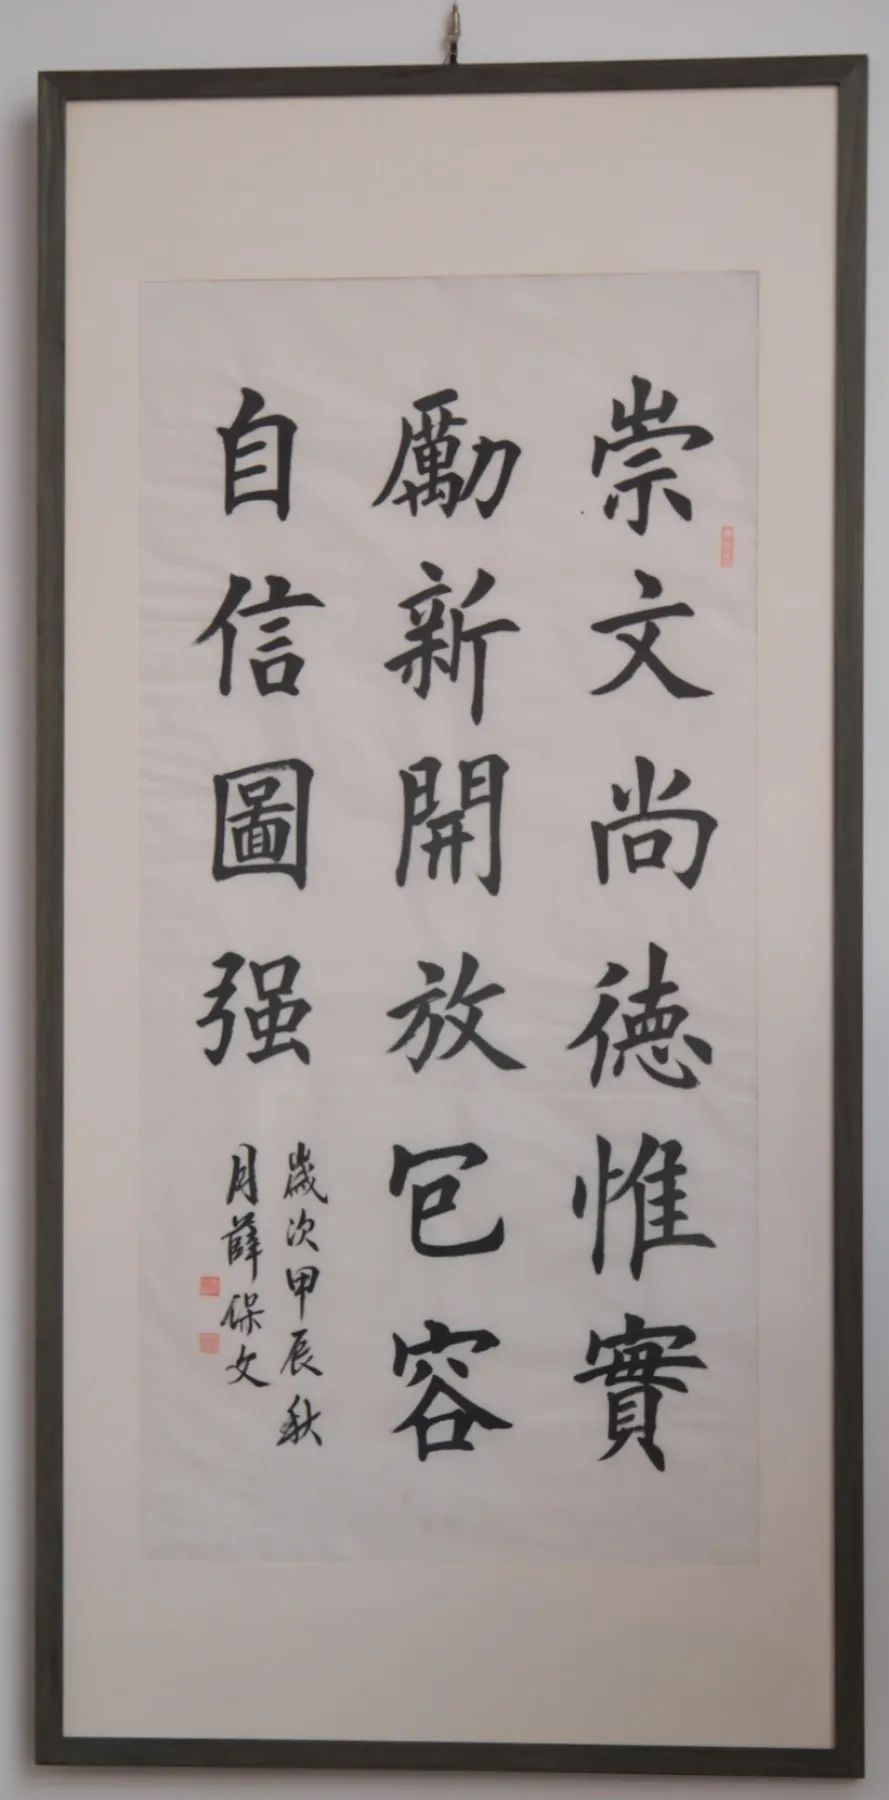 崇文尚德惟實
勵新開放包容
自信圖强
歲次甲辰秋
月薛保文